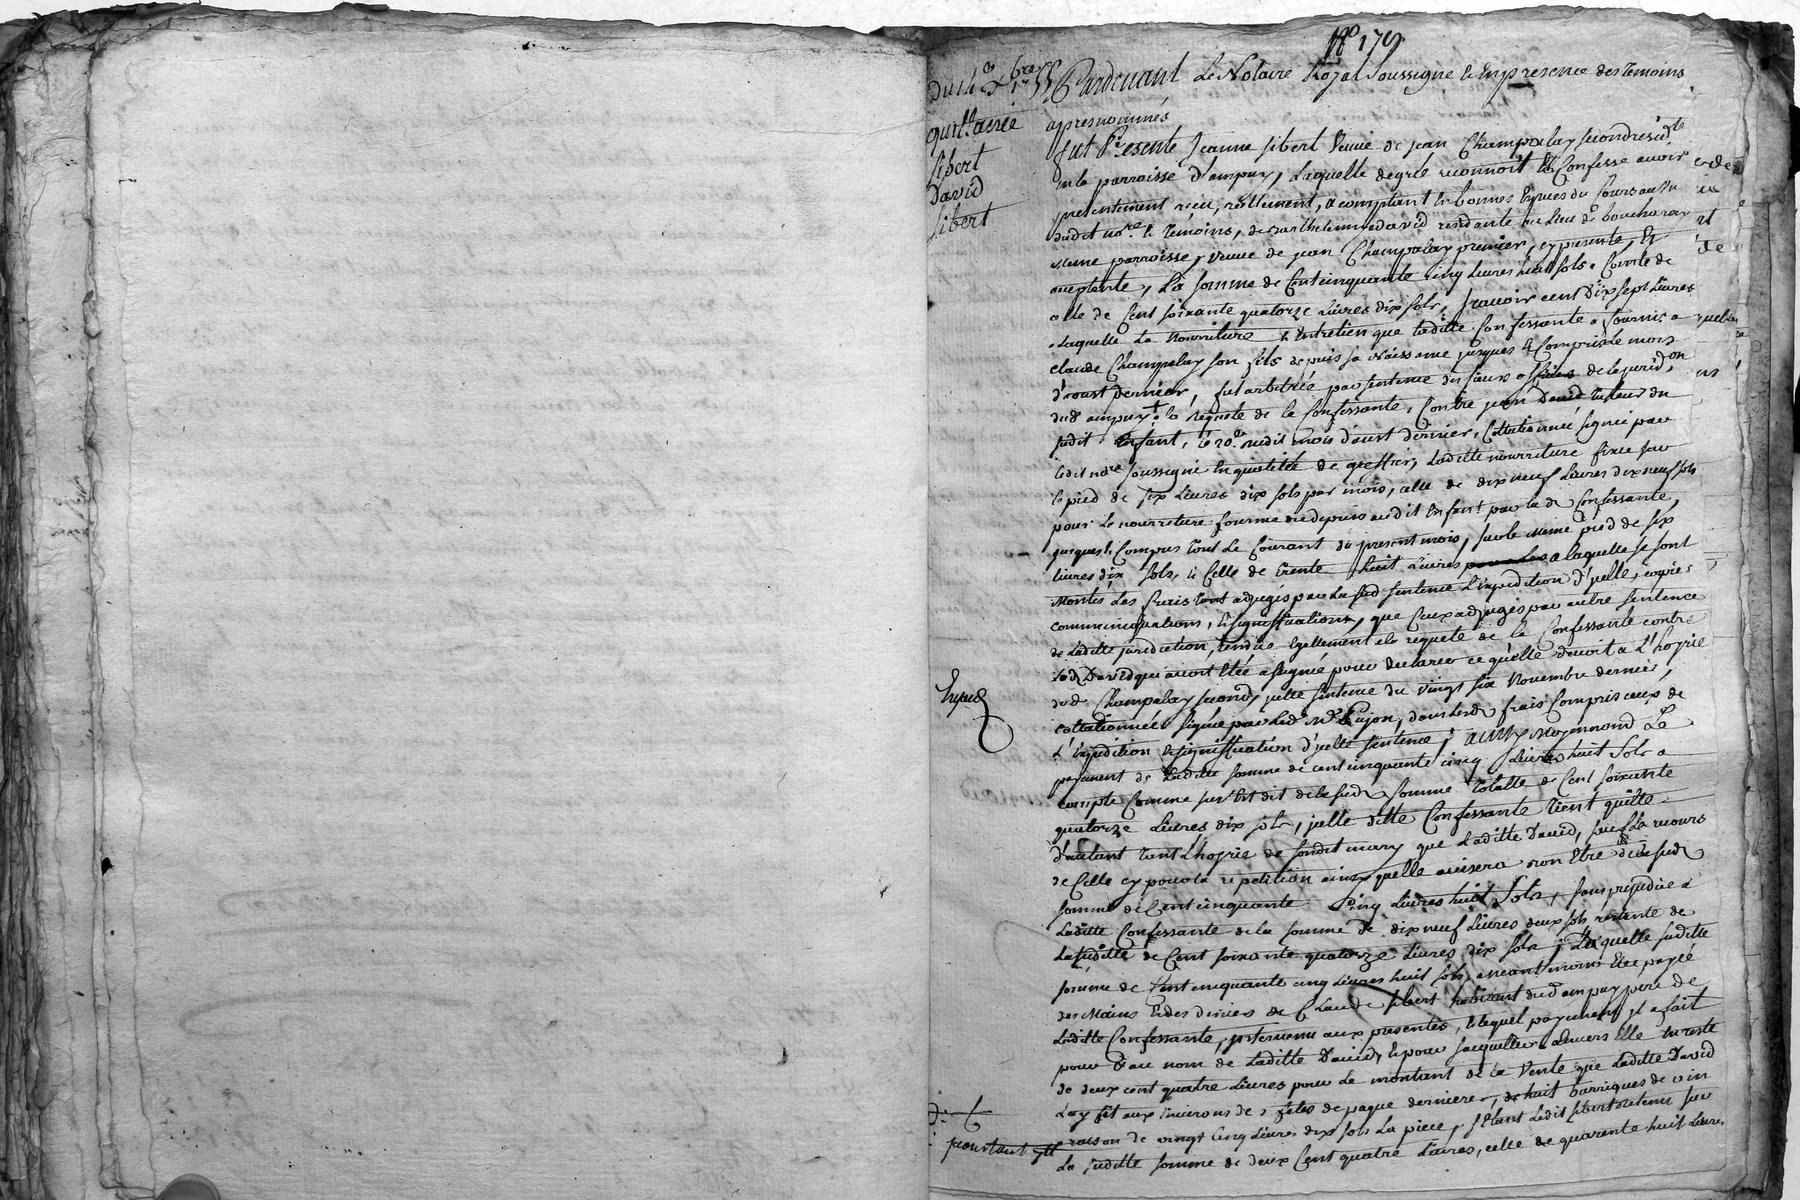 No 179
Quittance
Sibert
David
Sibert
Pardevant Le Notaire Royal soussigné & En presence des Temoins
apresnommés
fut Presente Jeanne Sibert Veuve de jean Champalay second resid.te
en la parroisse d'ampuy, Laquelle de gré reconnoit & Confesse avoir
presentement recu, reellement, a comptant En bonnes Especes du Cours au Vu
dudit no.re & Temoins, de Barthelemie david residante au Lieu de boucharay
meme parroisse, veuve de jean Champalay premier, cy presente, Et
acceptante, La somme de Cent cinquante cinq Livres huit sols a Compte de
celle de Cent soixante quatorze Livres dix sols, scavoir cent Dix sept Livres
a Laquelle La Nourriture & Entretien que laditte Confessante a fournis a
claude Champalay son fils depuis sa Naissance jusques & Compris Le mois
d'aoust dernier, fut arbitrée par sentence des sieurs officiers de la jurid.on
dud ampuy a la requete de la Confessante, Contre jean David tuteur du
sudit Enfant, le 20.e sudit mois d'aoust dernier, Collationnée signée par
ledit no.re soussigné En qualité de greffier, Laditte nourriture fixée sur
le pied de six Livres dix sols par mois, celle de dix neuf Livres dix neuf sols
pour La nourriture fournie du depuis audit Enfant par la d Confessante,
jusques & Compris tout Le Courant du present mois, sur le meme pied de six
livres dix sols, & Celle de trente huit Livres a laquelle se sont
Montés Les frais tant adjugés par La sud sentence L'Expedition d'ycelle, copies
communications, & significations, que Ceux adjugés par autre sentence
de Laditte juridiction, rendue Egallement a la requete de la Confessante contre
Lad David qui avoit Eté assignée pour declarer ce qu'elle devoit a L'hoyrie
dud Champalay second, ycelle sentence du vingt six Novembre dernier,
collationnée signée par Led M.e Pujon, dans Lesd frais Compris ceux de
L'Expedition & signification d'ycelle sentence; au Moyennand Le
payement de Laditte somme de cent cinquante cinq Livres huit sols a
compte Comme sus Est dit de la sud somme totalle de Cent soixante
quatorze Livres dix sols, ycelle ditte Confessante tient quitte
d'autant tant L'hoyrie de sondit mary que Laditte David, sauf Le recours
de Celle cy pour la repetition ainsy qu'elle avisera bon Etre de la sud
somme de Cent cinquante Cinq Livres huit Sols, sans prejudice a
Laditte Confessante de la somme de dix neuf Livres deux sols restante de
La suditte de Cent soixante quatorze Livres dix sols; Laquelle suditte
somme de Cent cinquante cinq Livres huit sols a neantmoins Eté payée
des Mains & des deniers de Claude Sibert habitant dud ampuy pere de
Laditte Confessante, intervenu aux presentes, & lequel payement il a fait
pour & au nom de Laditte David, & pour s'acquitter Envers Elle En reste
de deux cent quatre Livres pour Le montant de la Vente que Laditte David
Luy fit aux Environs des fetes de paque dernieres, de huit barriques de vin
raison de vingt Cinq Livres dix sols La piece, Etant Ledit Sibert retenu sur
La suditte somme de deux Cent quatre Livres, celle de quarente huit Livres
Exped